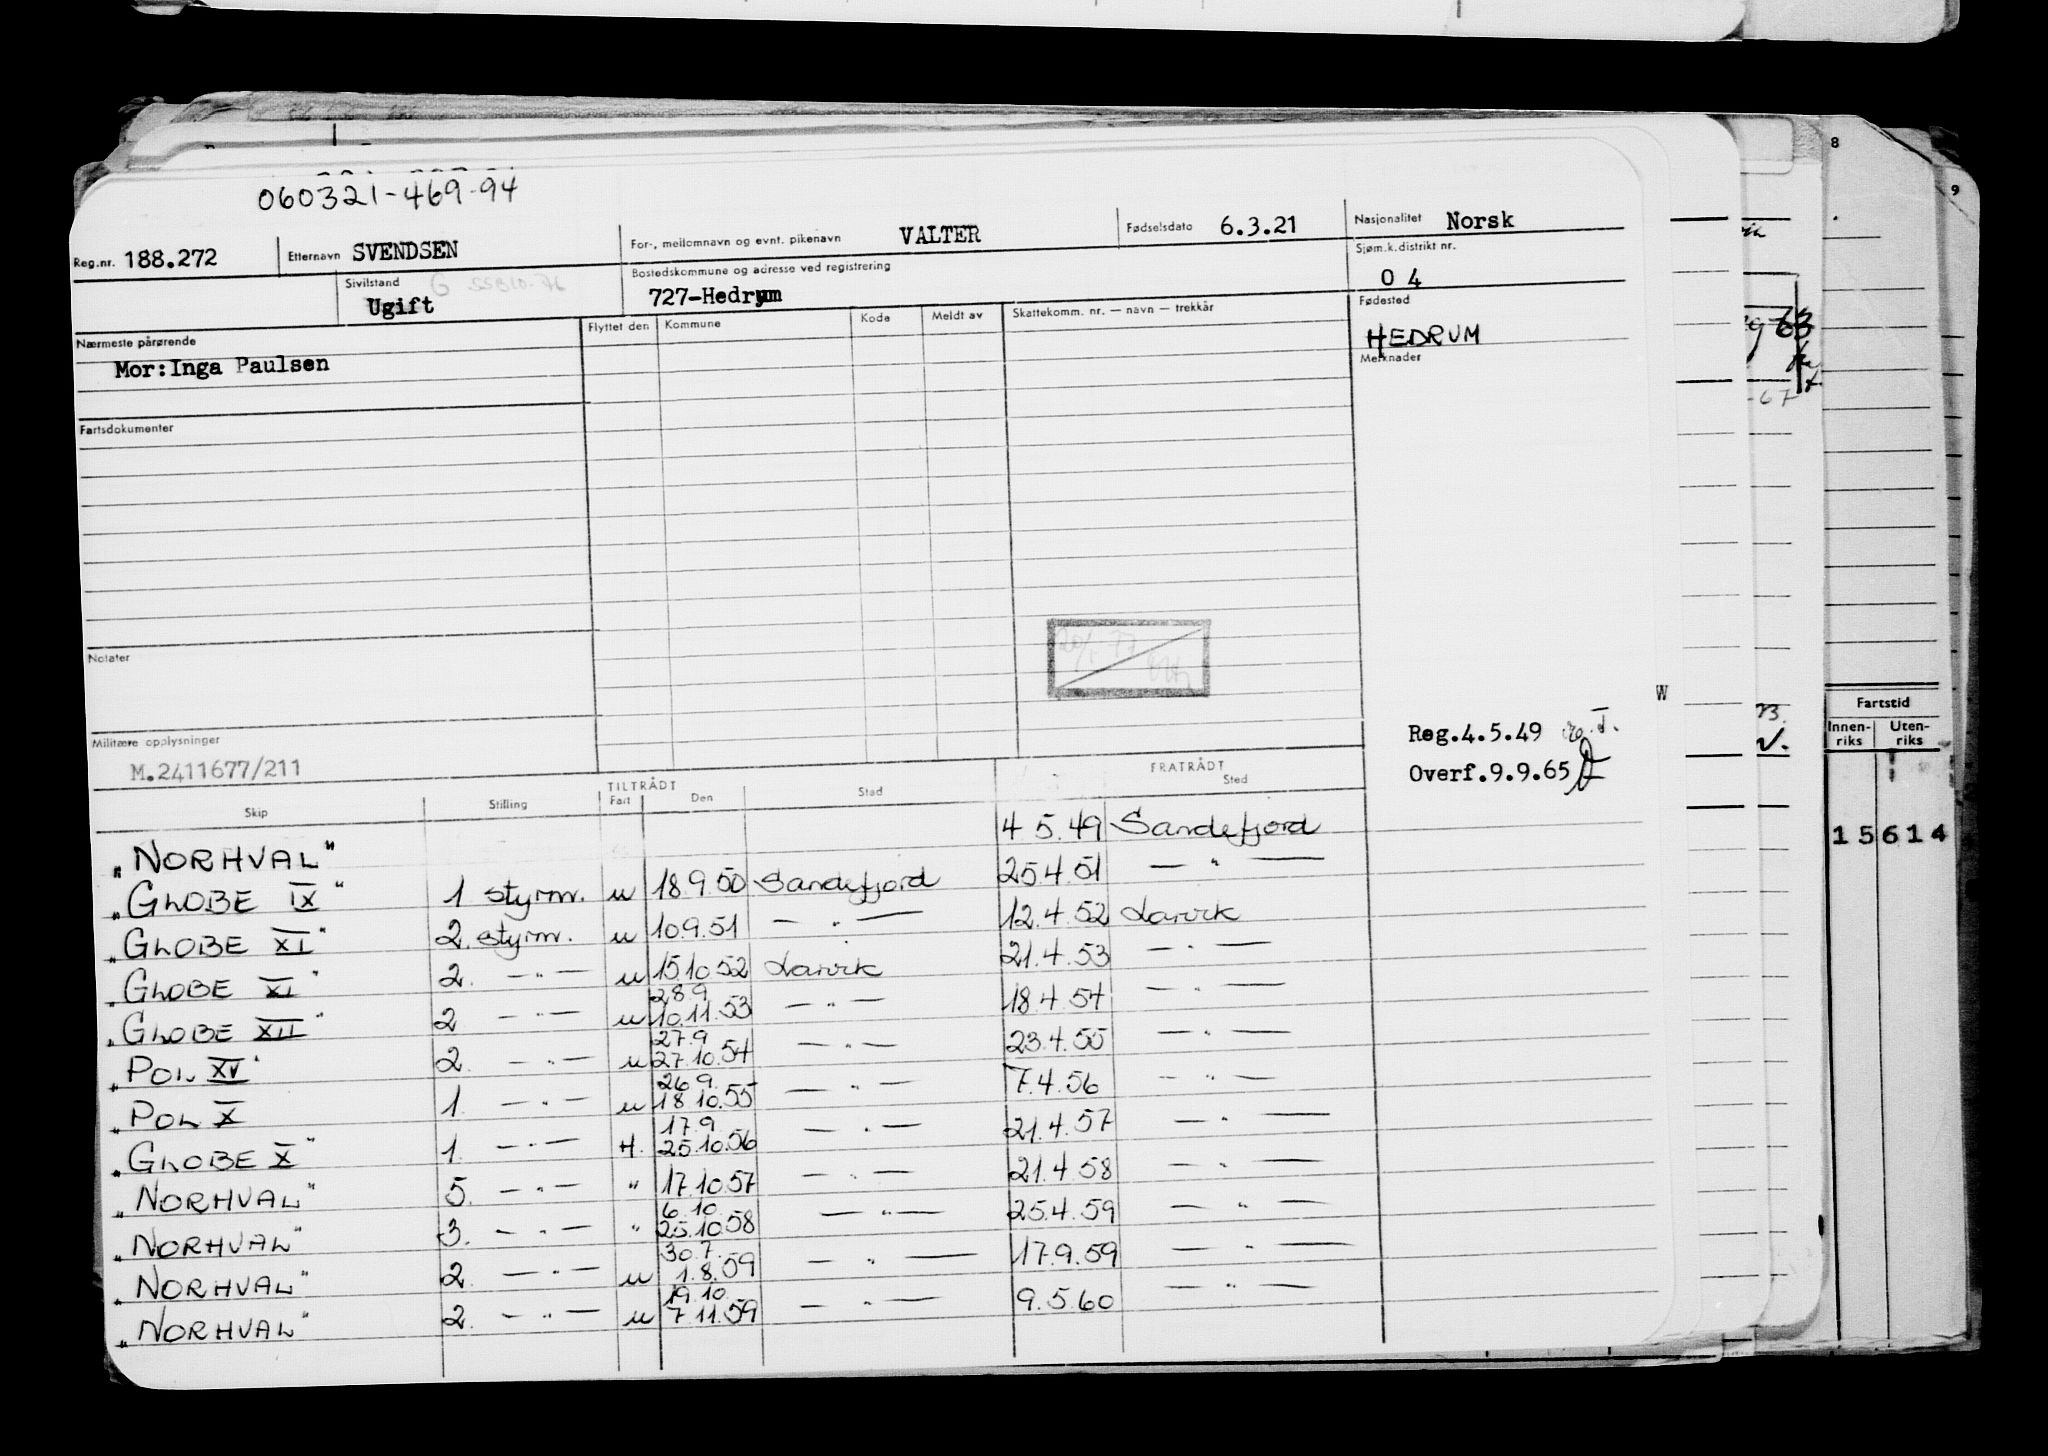 8
9
060321-469-94
Reg.nr. 188.272 Etternavn SVENDSEN For-, mellomnavn og evnt. pikenavn VALTER Fødselsdato 6.3.21 Nasjonalitet Norsk
Sivilstand Ugift Bostedskommune og adresse ved registrering 727-Hedrum Sjøm.k.distrikt nr. 04
Nærmeste pårørende Flyttet den Kommune Kode Meldt av Skattekomm. nr. — navn — trekkår Fødested
HEDRUM
Mor:Inga Paulsen
Merknader
Fartsdokumenter
Notater
Militære opplysninger
M.2411677/211
Reg.4.5.49
Overf.9.9.65
W
Fartstid
Innen-riks Uten-riks
15614
TILTRÅDT FRATRÅDT
Skip Stilling Fart Den Sted Sted
„NORHVAL" 4 5.49 Sandefjord
„GLOBE IX" 1 styrm. u 18.9.50 Sandefjord 25.4.51 — " —
„GLOBE XI" 2. styrm. u 10.9.51 — " — 12.4.52 Larvik
„GLOBE XI" 2. — " — u 15.10.52 Larvik 21.4.53 — " —
28.9
„GLOBE XII" 2 — " — u 10.11.53 — " — 18.4.54 — " —
27.9
„POL XV" 2. — " — u 27.10.54 — " — 23.4.55 — " —
26.9.
„POL X 1. — " — u 18.10.55 — " — 7.4.56 — " —
17.9
„GLOBE X" 1. — " — H. 25.10.56 — " — 21.4.57 — " —
„NORHVAL" 5. — " — " 17.10.57 — " — 21.4.58 — " —
6.10.
„NORHVAL" 3. — " — " 25.10.58 — " — 25.4.59 — " —
30.7.
„NORHVAL" 2. — " — u 1.8.59 — " — 17.9.59 — " —
19.10.
„NORHVAL" 2. — " — u 7.11.59 — " — 9.5.60 — " —